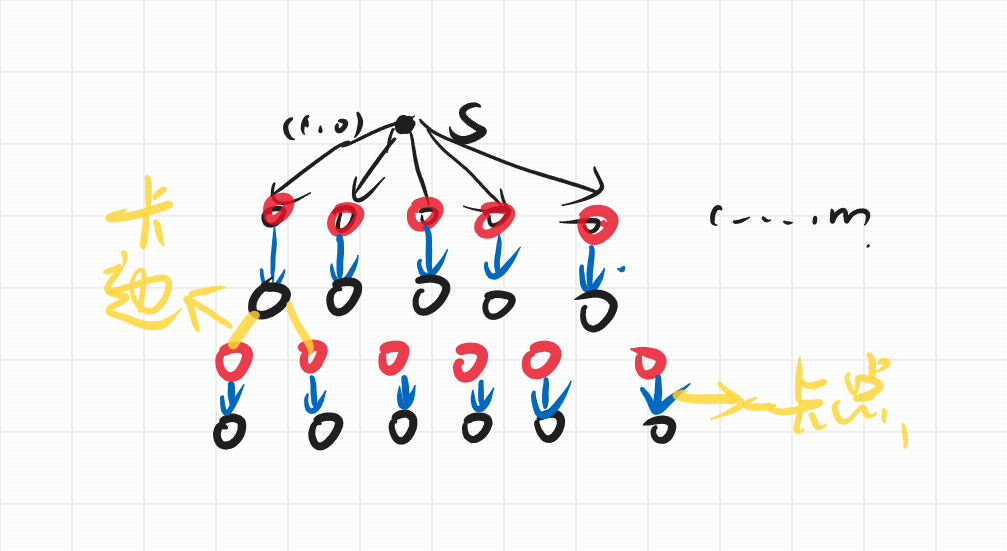 (1.0) S
(....,m
卡
边
卡点